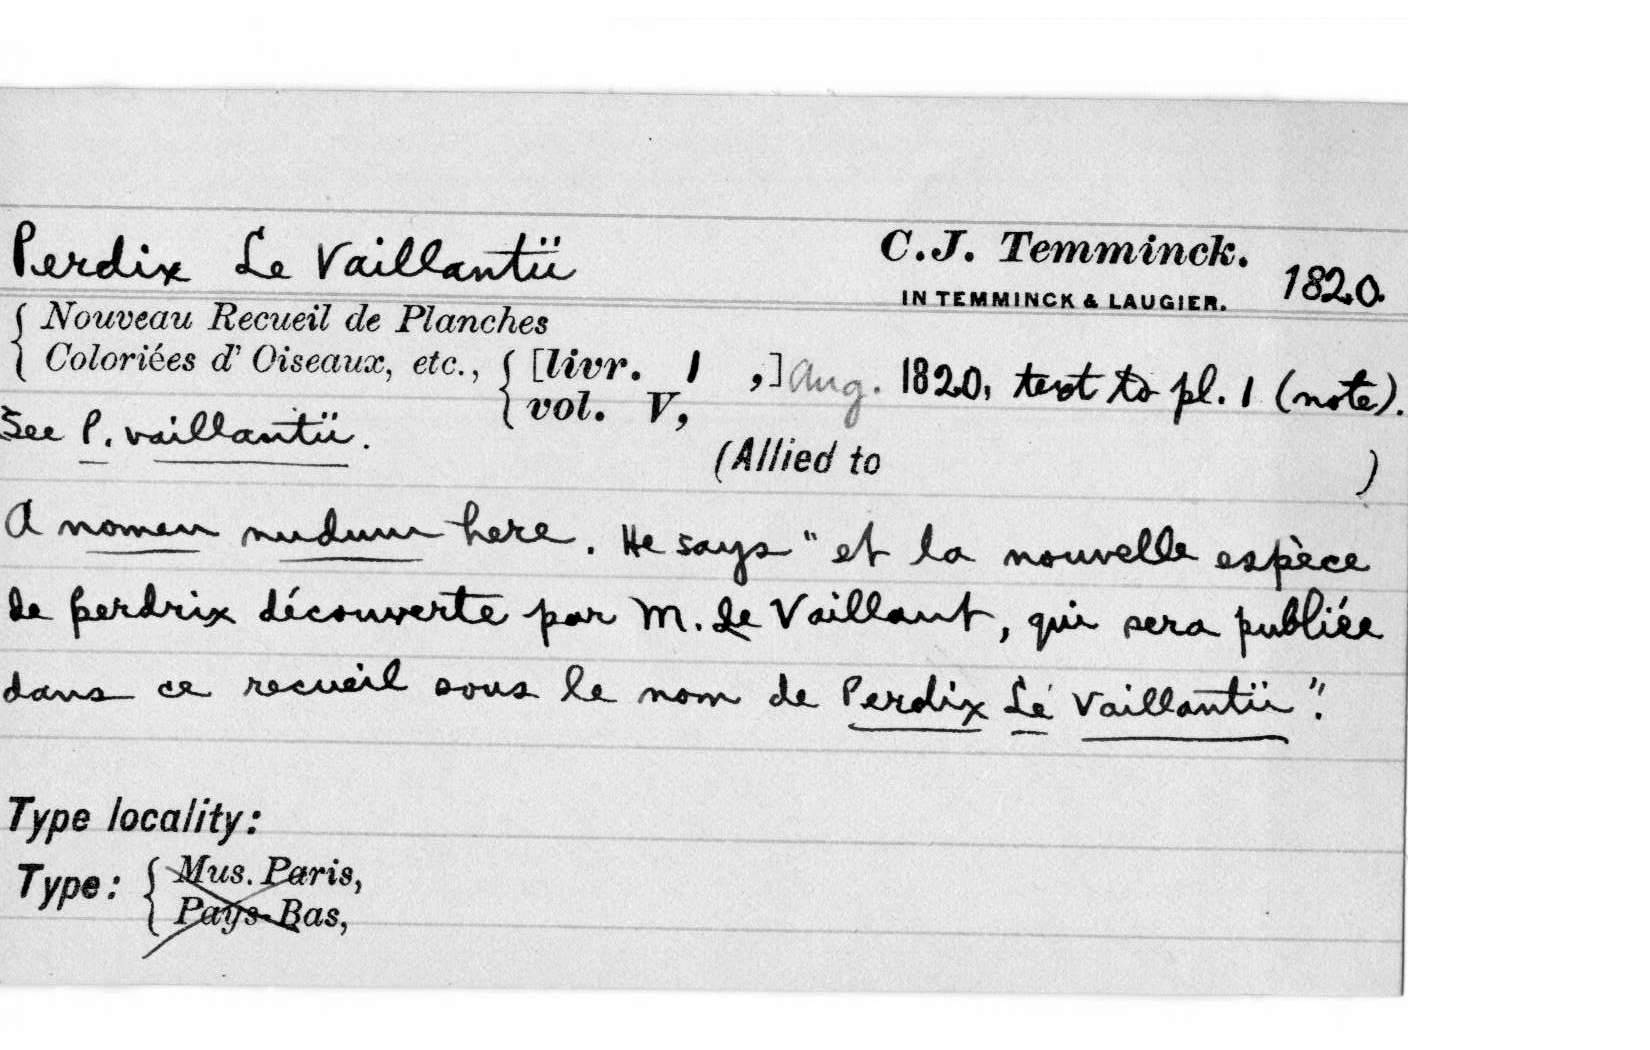 Perdix Le Vaillantii C.J. Temminck. 1820.
IN TEMMINCK & LAUGIER.
{ Nouveau Recueil de Planches
Coloriées d' Oiseaux, etc., { [livr. 1 ,] Aug. 1820, text to pl. 1 (note).
vol. V,
See P. vaillantii.
(Allied to )
A nomen nudum here. He says "et la nouvelle espèce
de perdrix découverte par M. Le Vaillant, qui sera publiée
dans ce recueil sous le nom de Perdix Lé Vaillantii".
Type locality:
Type: { Mus. Paris,
Pays-Bas,